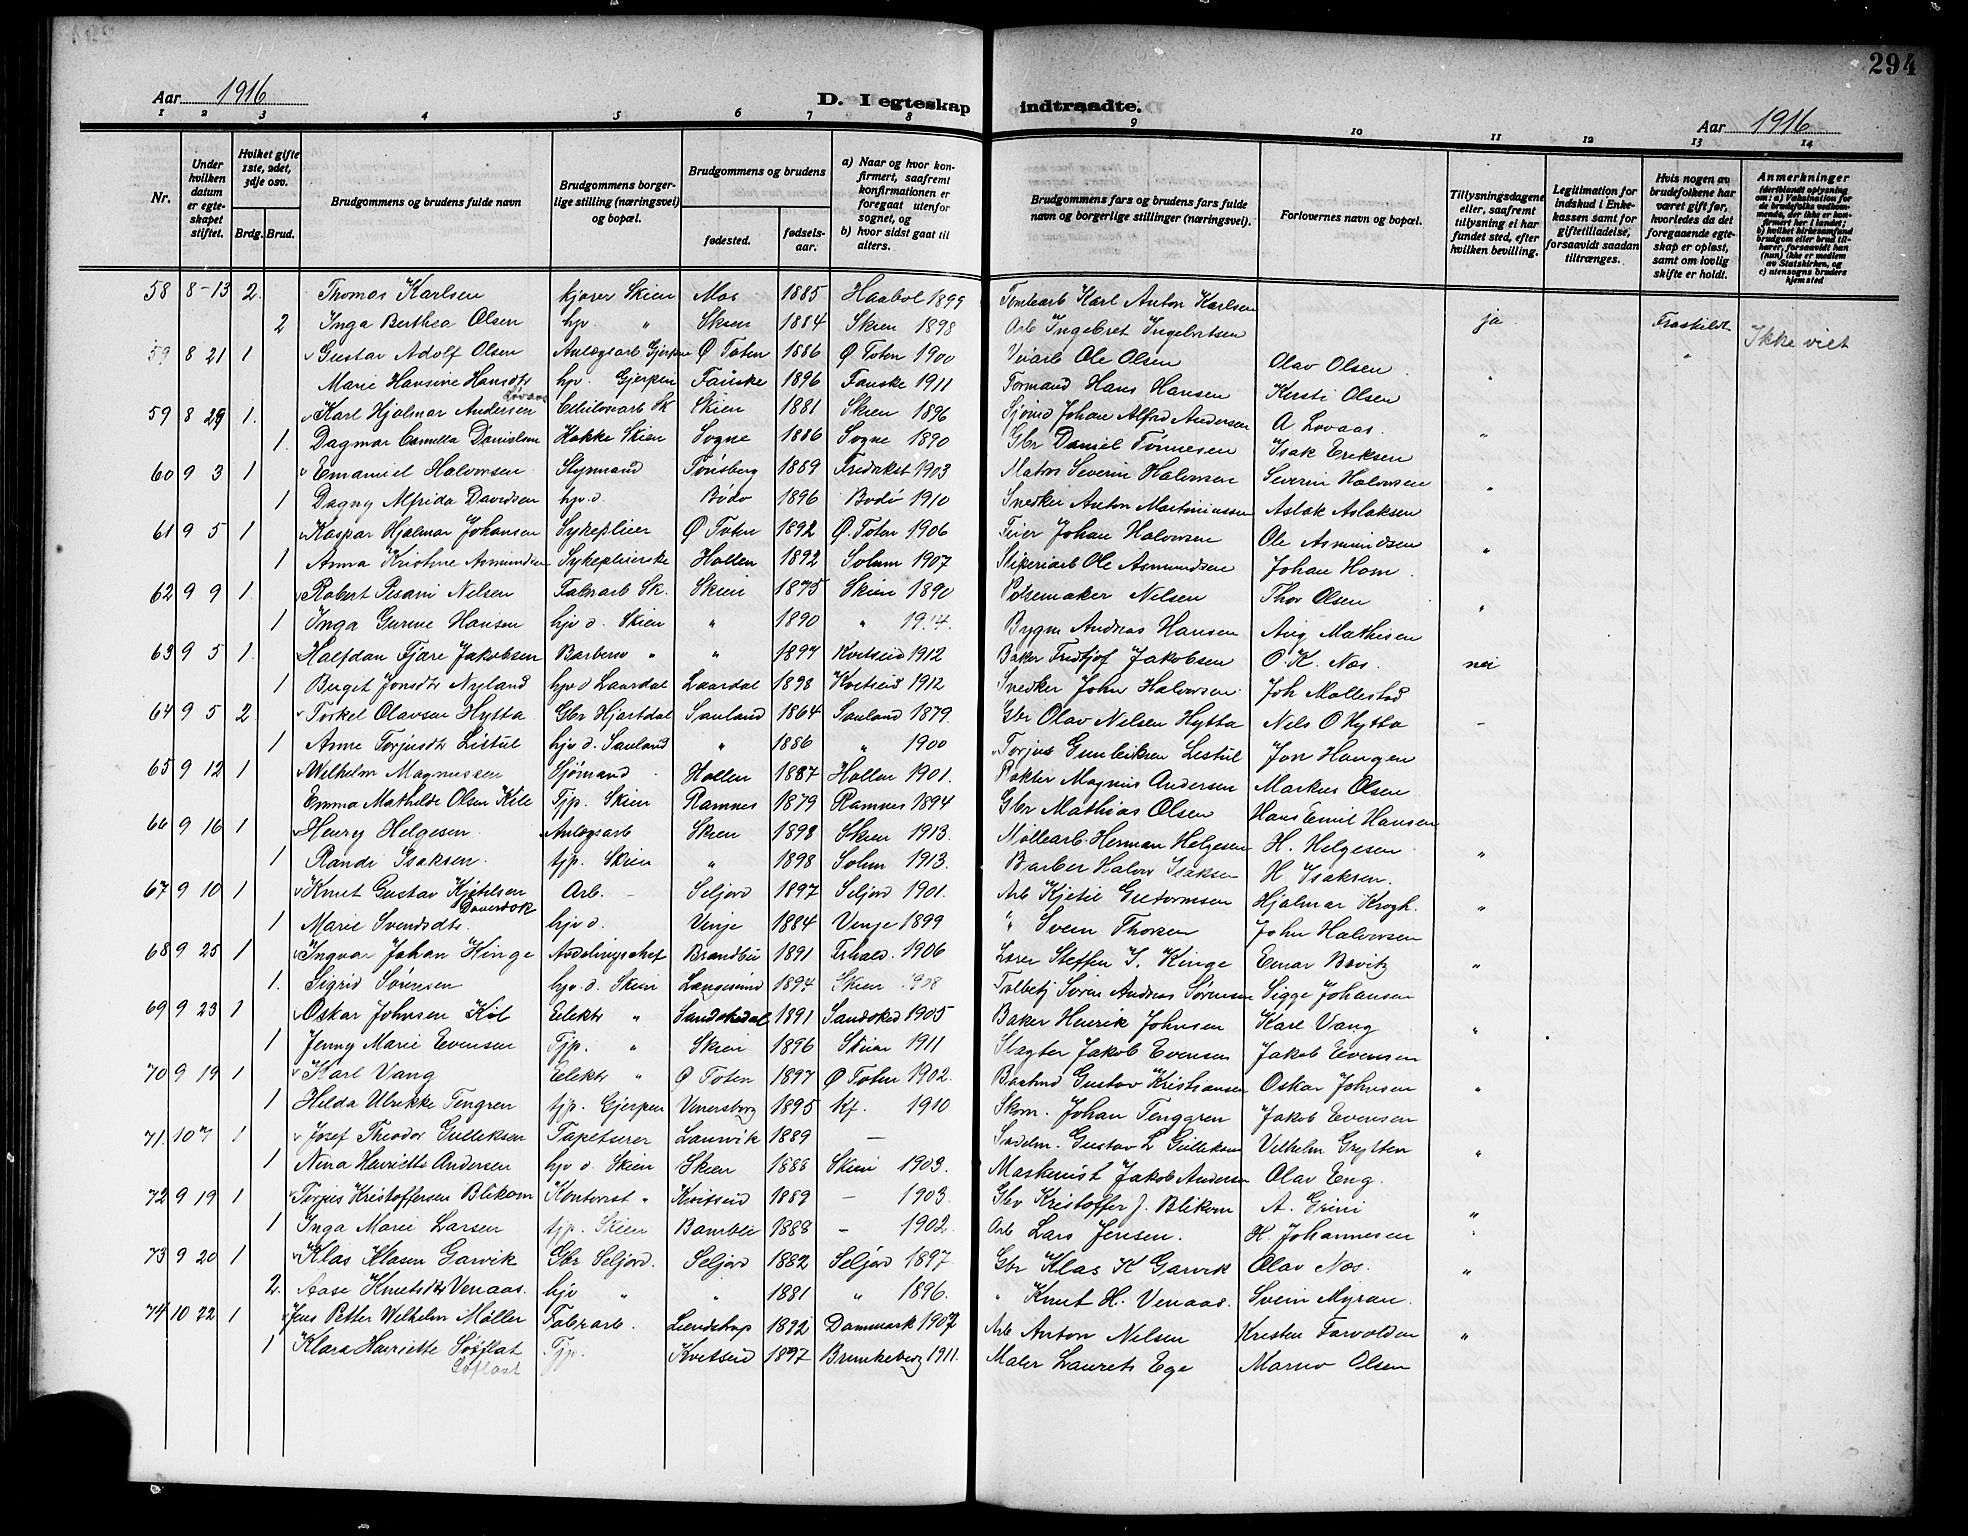 294
Aar 1916 D. I egteskap indtraadte. Aar 1916
1 2 3 4 5 6 7 8 9 10 11 12 13 14
Nr. | Under hvilken datum er egteskapet stiftet. | Hvilket gifte 1ste, 2det, 3dje osv. Brdg. Brud. | Brudgommens og brudens fulde navn | Brudgommens borgerlige stilling (næringsvei) og bopæl. | Brudgommens og brudens fødested. | fødselsaar. | a) Naar og hvor konfirmert, saafremt konfirmationen er foregaat utenfor sognet, og b) hvor sidst gaat til alters. | Brudgommens fars og brudens fars fulde navn og borgerlige stillinger (næringsvei). | Forlovernes navn og bopæl. | Tillysningsdagene eller, saafremt tillysning ei har fundet sted, efter hvilken bevilling. | Legitimation for indskud i Enkekassen samt for giftetilladelse, forsaavidt saadan tiltrænges. | Hvis nogen av brudefolkene har været gift før, hvorledes da det foregaaende egteskap er opløst, samt om lovlig skifte er holdt. | Anmerkninger (deriblandt oplysning om: a) Vaksination for de brudefolks vedkommende, der ikke er konfirmert her i landet; b) hvilket kirkesamfund brudgom eller brud tilhører, forsaavidt han (hun) ikke er medlem av Statskirken, og c) utensogns bruders hjemsted
58 8-13 2 Thomas Karlsen kjører Skien Mos 1885 Haabøl 1899 Karl Anton Karlsen
2 Inga Berthea Olsen hjv. " Skien 1884 Skien 1898 Arb Ingebret Ingebretsen ja Fraskildt Ikke viet
59 8 21 1 Gustav Adolf Olsen Anlægsarb Gjerpen Ø Toten 1886 Ø Toten 1900 Veiarb Ole Olsen Olav Olsen "
Marie Hansine Hansdtr hjv. Gjerpen Fauske 1896 Fauske 1911 Formand Hans Hansen Kersti Olsen "
Lovaas
59 8 29 1. Karl Hjalmar Andersen Sk Skien 1881 Skien 1896 Sjømd Johan Alfred Andersen A Lovaas.
1. Dagmar Camilla Danielsen Kokke Skien Sogne 1886 Sogne 1890 Gbr Daniel Tønnesen Isak Eriksen "
60 9 3 1 Emanuel Halvorsen Styrmand Tønsberg 1889 Fredrikst 1903 Matros Severin Halvorsen Severin Halvorsen
1 Dagny Alfrida Davidsen hjv.d. Bodø 1896 Bodø 1910 Snedker Anton Martiniussen Aslak Aslaksen "
61 9 5 1 Kaspar Hjalmar Johansen Sykepleier Ø Toten 1892 Ø. Toten 1906 Feier Johan Halvorsen Ole Asmundsen
1 Anna Kristine Asmundsen Sykepleierske Hollen 1892 Solum 1907 Sliperiarb Ole Asmundsen Johan Hom "
62 9 9 1 Robert Nelsen Fabrarb Sk. Skien 1875 Skien 1890 Pølsemaker Nelsen Thor Olsen
1 Inga Gurine Hansen hjv d. Skien " 1890 " Bygm Andreas Hansen Aug Mathisen "
63 9 5 1. Halfdan Fjære Jakobsen Barberer " " 1897 Kvitseid 1912 Baker Fridtjof Jakobsen O. K. Næs. nei
1 Berget Jonsdtr Nyland hjv d Laardal Laardal 1898 Kvitseid 1912 Snedker John Halvorsen Joh Mollestad
64 9 5 2. Torkel Olavsen Hytta Gbr Hjartdal Sauland 1864 Sauland 1879. Gbr Olav Nelsen Hytta Nels O Hytta -
1 Anne Torjusdtr Listul hjv d. Sauland " 1886 " 1900 Torjus Gunleiksen Listul Jon Haugen
65 9 12 1 Wilhelm Magnussen Sjømand Hollen 1887 Hollen 1901. Magnus Andersen Markus Olsen
Emma Mathilde Olsen Kile Tjp. Skien Ramnes 1879 Ramnes 1894 Gbr Mathias Olsen Hans Emil Hansen
66 9 16 1 Henry Helgesen Anlægsarb Skien 1898 Skien 1913. Møllearb. Herman Helgesen H. Helgesen
1 Randi Isaksen. tjp. Skien " 1898 Solum 1913. Barber Halvor Isaksen H Isaksen. "
67 9 10 1 Knut Gustav Kjetilsen Arb. - Seljord 1897 Seljord 1901. Arb Kjetil Guttormsen Hjalmar Krogh.
1 Marie Svendsdtr. hjv d. Vinje 1884 Vinje 1899 " Svein Thorsen John Halvorsen "
68 9 25 1 Ingvar Johan Hinge Avdelingschef Brandbu 1891 1906 Lærer Steffen I. Kinge Einar Bovitz "
1. Sigrid Sørensen hjv. d. Skien Langesund 1894 Skien 1908 Tolbetj Søren Andreas Sørensen Sigge Johansen
69 9 23 1 Oskar Johnsen Kiil Elektr " Sandokedal 1891 Sandoked 1905 Baker Henrik Johnsen Karl Vang "
1 Jenny Marie Evensen Tjp. " Skien 1896 Skien 1911 Slagter Jakob Evensen Jakob Evensen
70 9 19 1 Karl Vang Elektr " Ø Toten 1897 Ø Toten 1902. Gustav Kristiansen Oskar Johnsen "
1 Hilda Ulrikke Tengren tjp. Gjerpen Venersborg 1895 kf. 1910 Skom. Johan Tenggren Jakob Evensen
71. 10 7 1 Josef Theodor Gulleksen Tapetserer Laurvik 1889 - Sadelm. Gustav L Gulleksen Vilhelm Grytten "
1 Nina Henriette Andersen hjv d. Skien Skien 1888 Skien 1903. Maskinist Jakob Andersen Olav Eng.
72 9 19 1 Torjus Kristoffersen Blikom Kontorist " Kvitseid 1889 - 1903. Gbr Kristoffer J. Blikom A. Grini "
1 Inga Marie Larsen tjp. Skien Bamble 1888 - 1902. Arb Lars Jensen. H. Johannesen
73 9 20 1 Klas Klasen Garvik Gbr Seljord. Seljord 1882 Seljord 1897. Gbr Klas K Garvik Olav Næs. "
2. Aase Knutsdtr Venaas. hjv " " 1881 " 1896. " Knut H. Venaas. Svein Myran.
74 10 22 1 Jens Petter Wilhelm Møller Fabrarb. 1892 Danmark 1907 Arb Anton Nilsen Kristen Farvolden "
1 Klara Henriette Søfflat Tjp. Kvitseid 1897 Brunkeberg 1911. Maler Laurits Ege Olsen